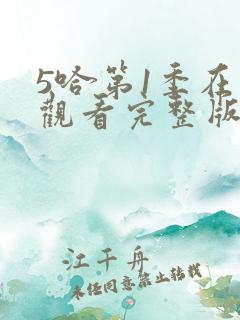 5哈第1季在
觀看完整版
江千舟
未经同意禁止转载